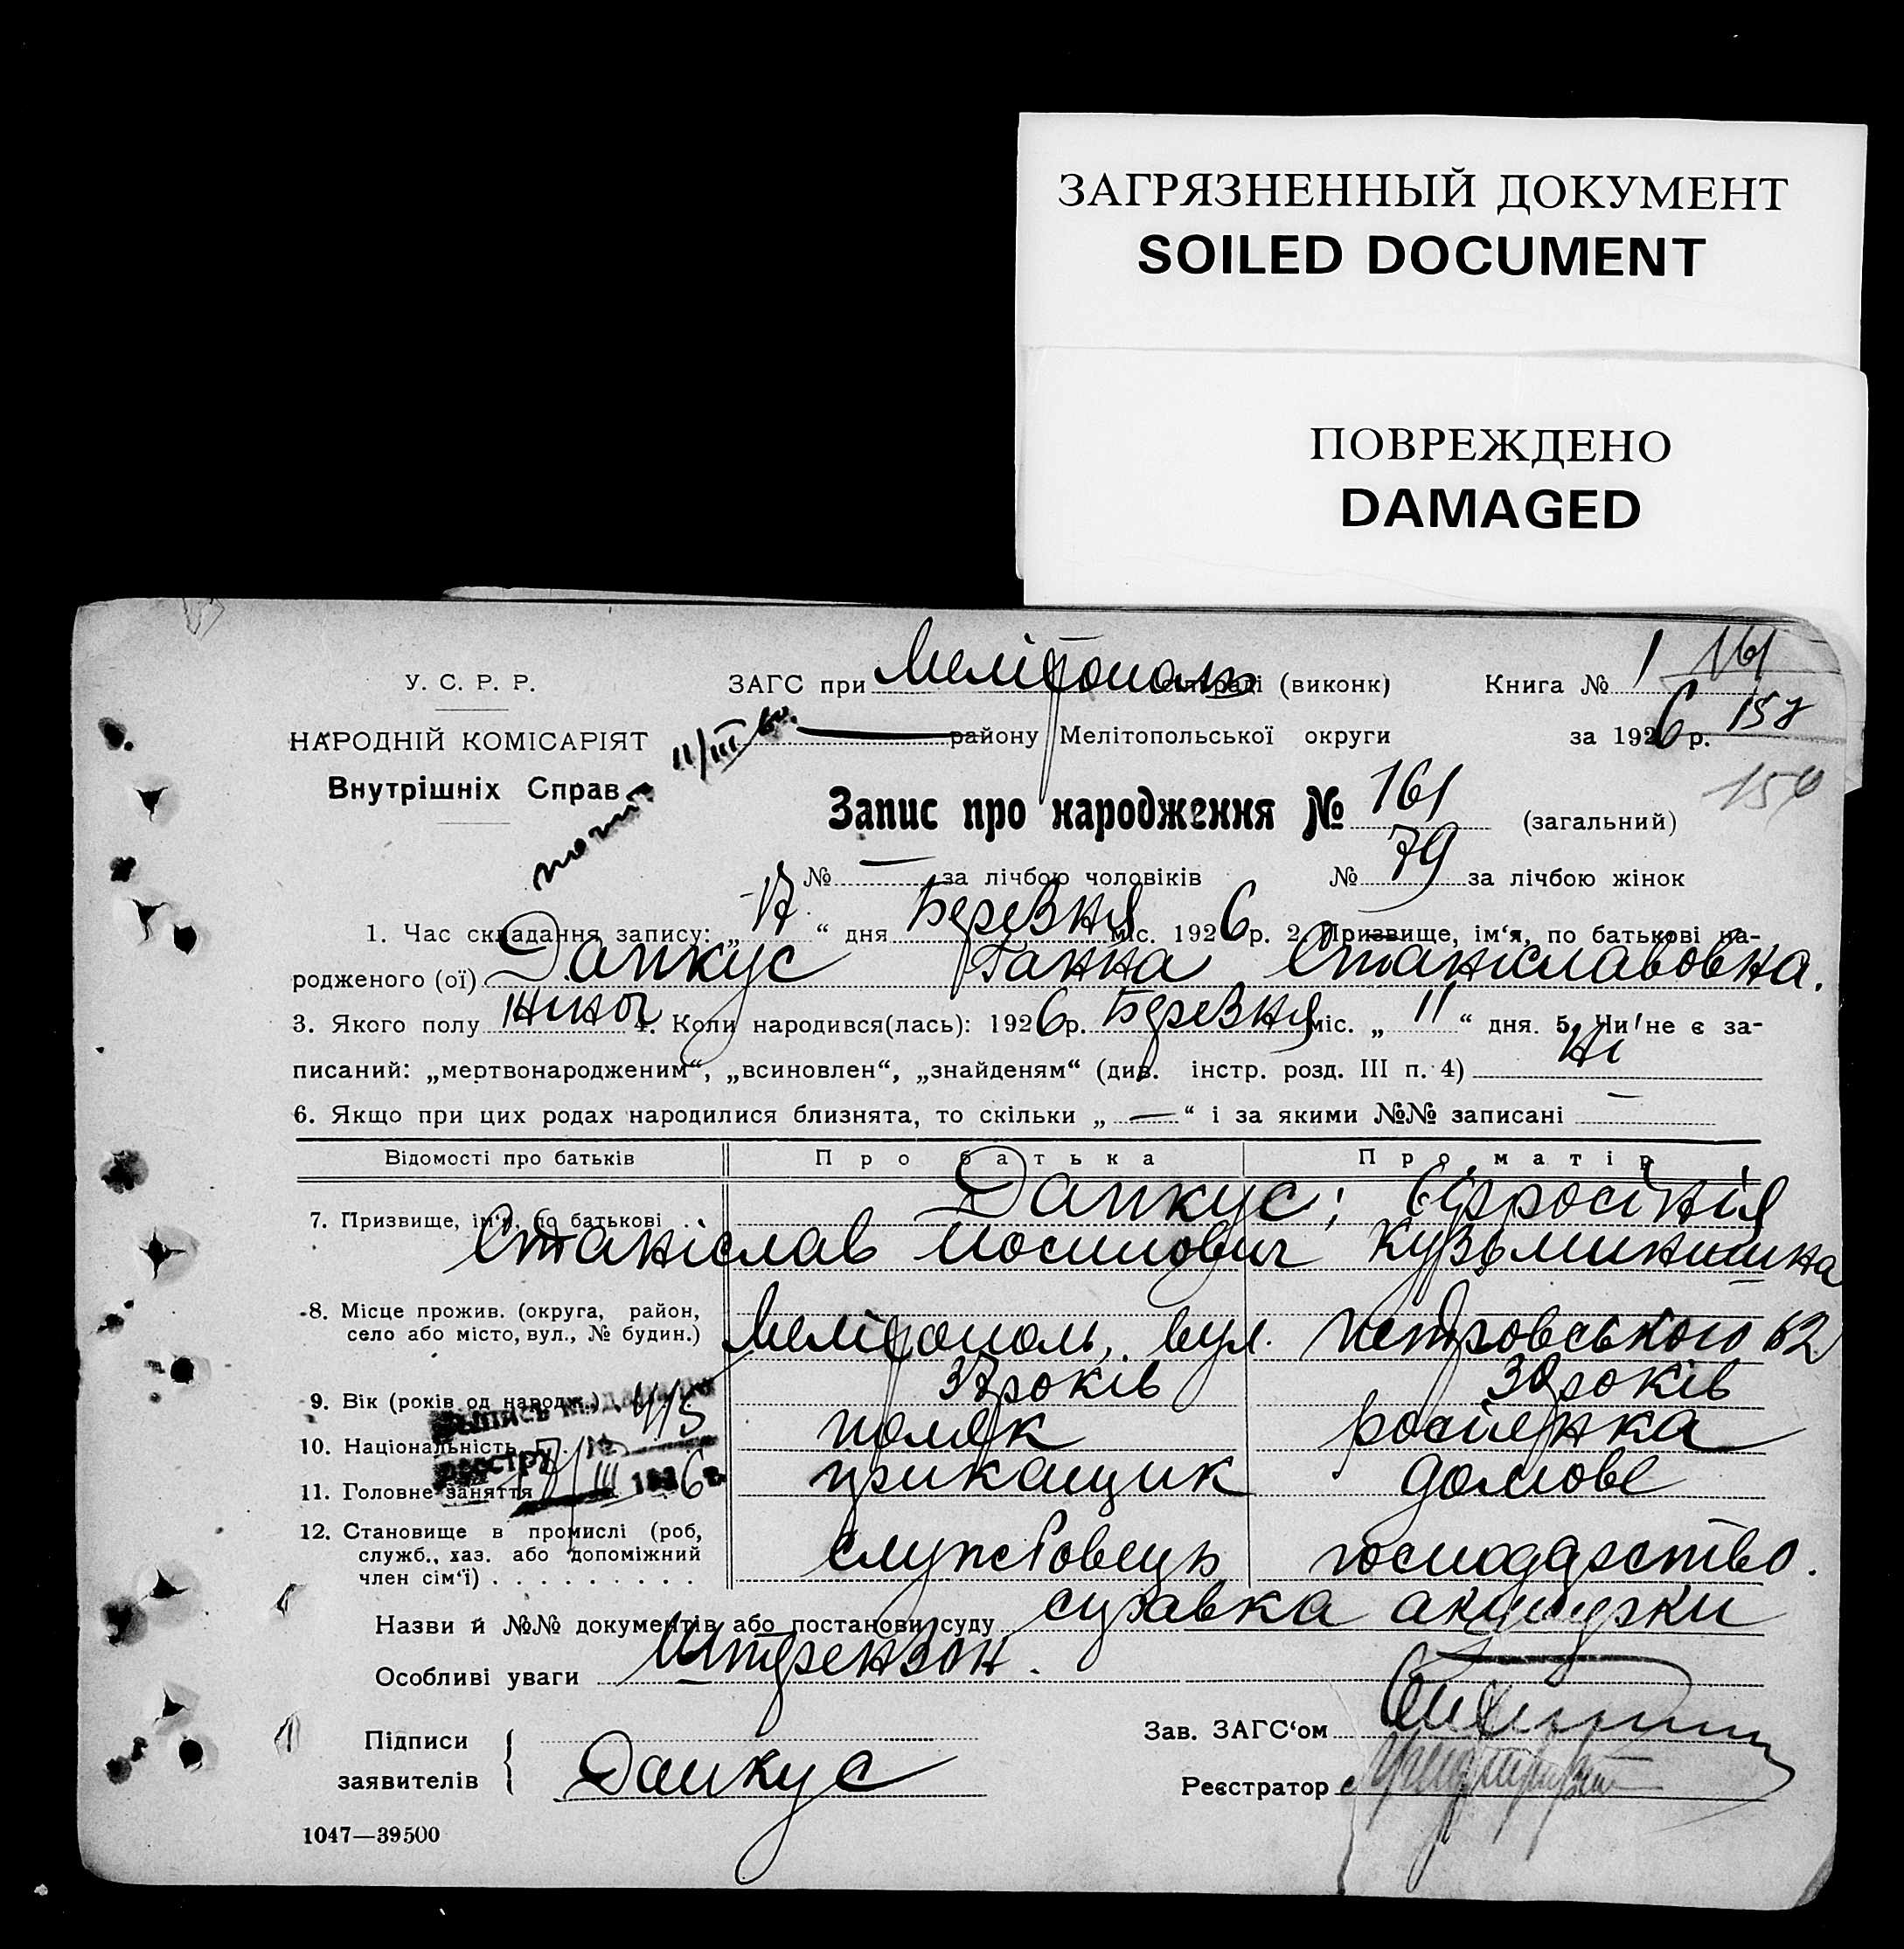 ЗАГРЯЗНЕННЫЙ ДОКУМЕНТ
SOILED DOCUMENT
ПОВРЕЖДЕНО
DAMAGED
У. С. Р. Р. ЗАГС при Мелітополь сільраді (виконк) Книга № 1 161
НАРОДНІЙ КОМІСАРІЯТ 11/III району Мелітопольської округи за 1926 р. 157
Внутрішніх Справ
Запис про народження № 161 (загальний)
№ — за лічбою чоловіків № 79 за лічбою жінок
1. Час складання запису: „17“ дня Березня міс. 1926 р. 2. Призвище, ім‘я, по батькові на-
родженого (ої) Дапкус Ганна Станіславовна.
3. Якого полу жіноч 4. Коли народився(лась): 1926 р. Березня міс. „11“ дня. 5. Чи не є за-
писаний: „мертвонародженим“, „всиновлен“, „знайденям“ (див. інстр. розд. III п. 4) Ні
6. Якщо при цих родах народилися близнята, то скільки „—“ і за якими №№ записані —
Відомості про батьків Про батька Про матір
7. Призвище, ім‘я, по батькові Дапкус; Єфросінія
Станіслав Йосипович Кузьминишна
8. Місце прожив. (округа, район,
село або місто, вул., № будин.) Мелітополь, вул. Петровського 62
9. Вік (років од народж.) 37 років 30 років
10. Національність поляк росіянка
11. Головне заняття прикащик домове
12. Становище в промислі (роб,
служб., хаз. або допоміжний
член сім‘ї) службовець господарство.
Назви й №№ документів або постанови суду справка акушерки
Особливі уваги Штрензон.
Підписи
заявителів Дапкус
Зав. ЗАГС‘ом
Реєстратор
1047—39500